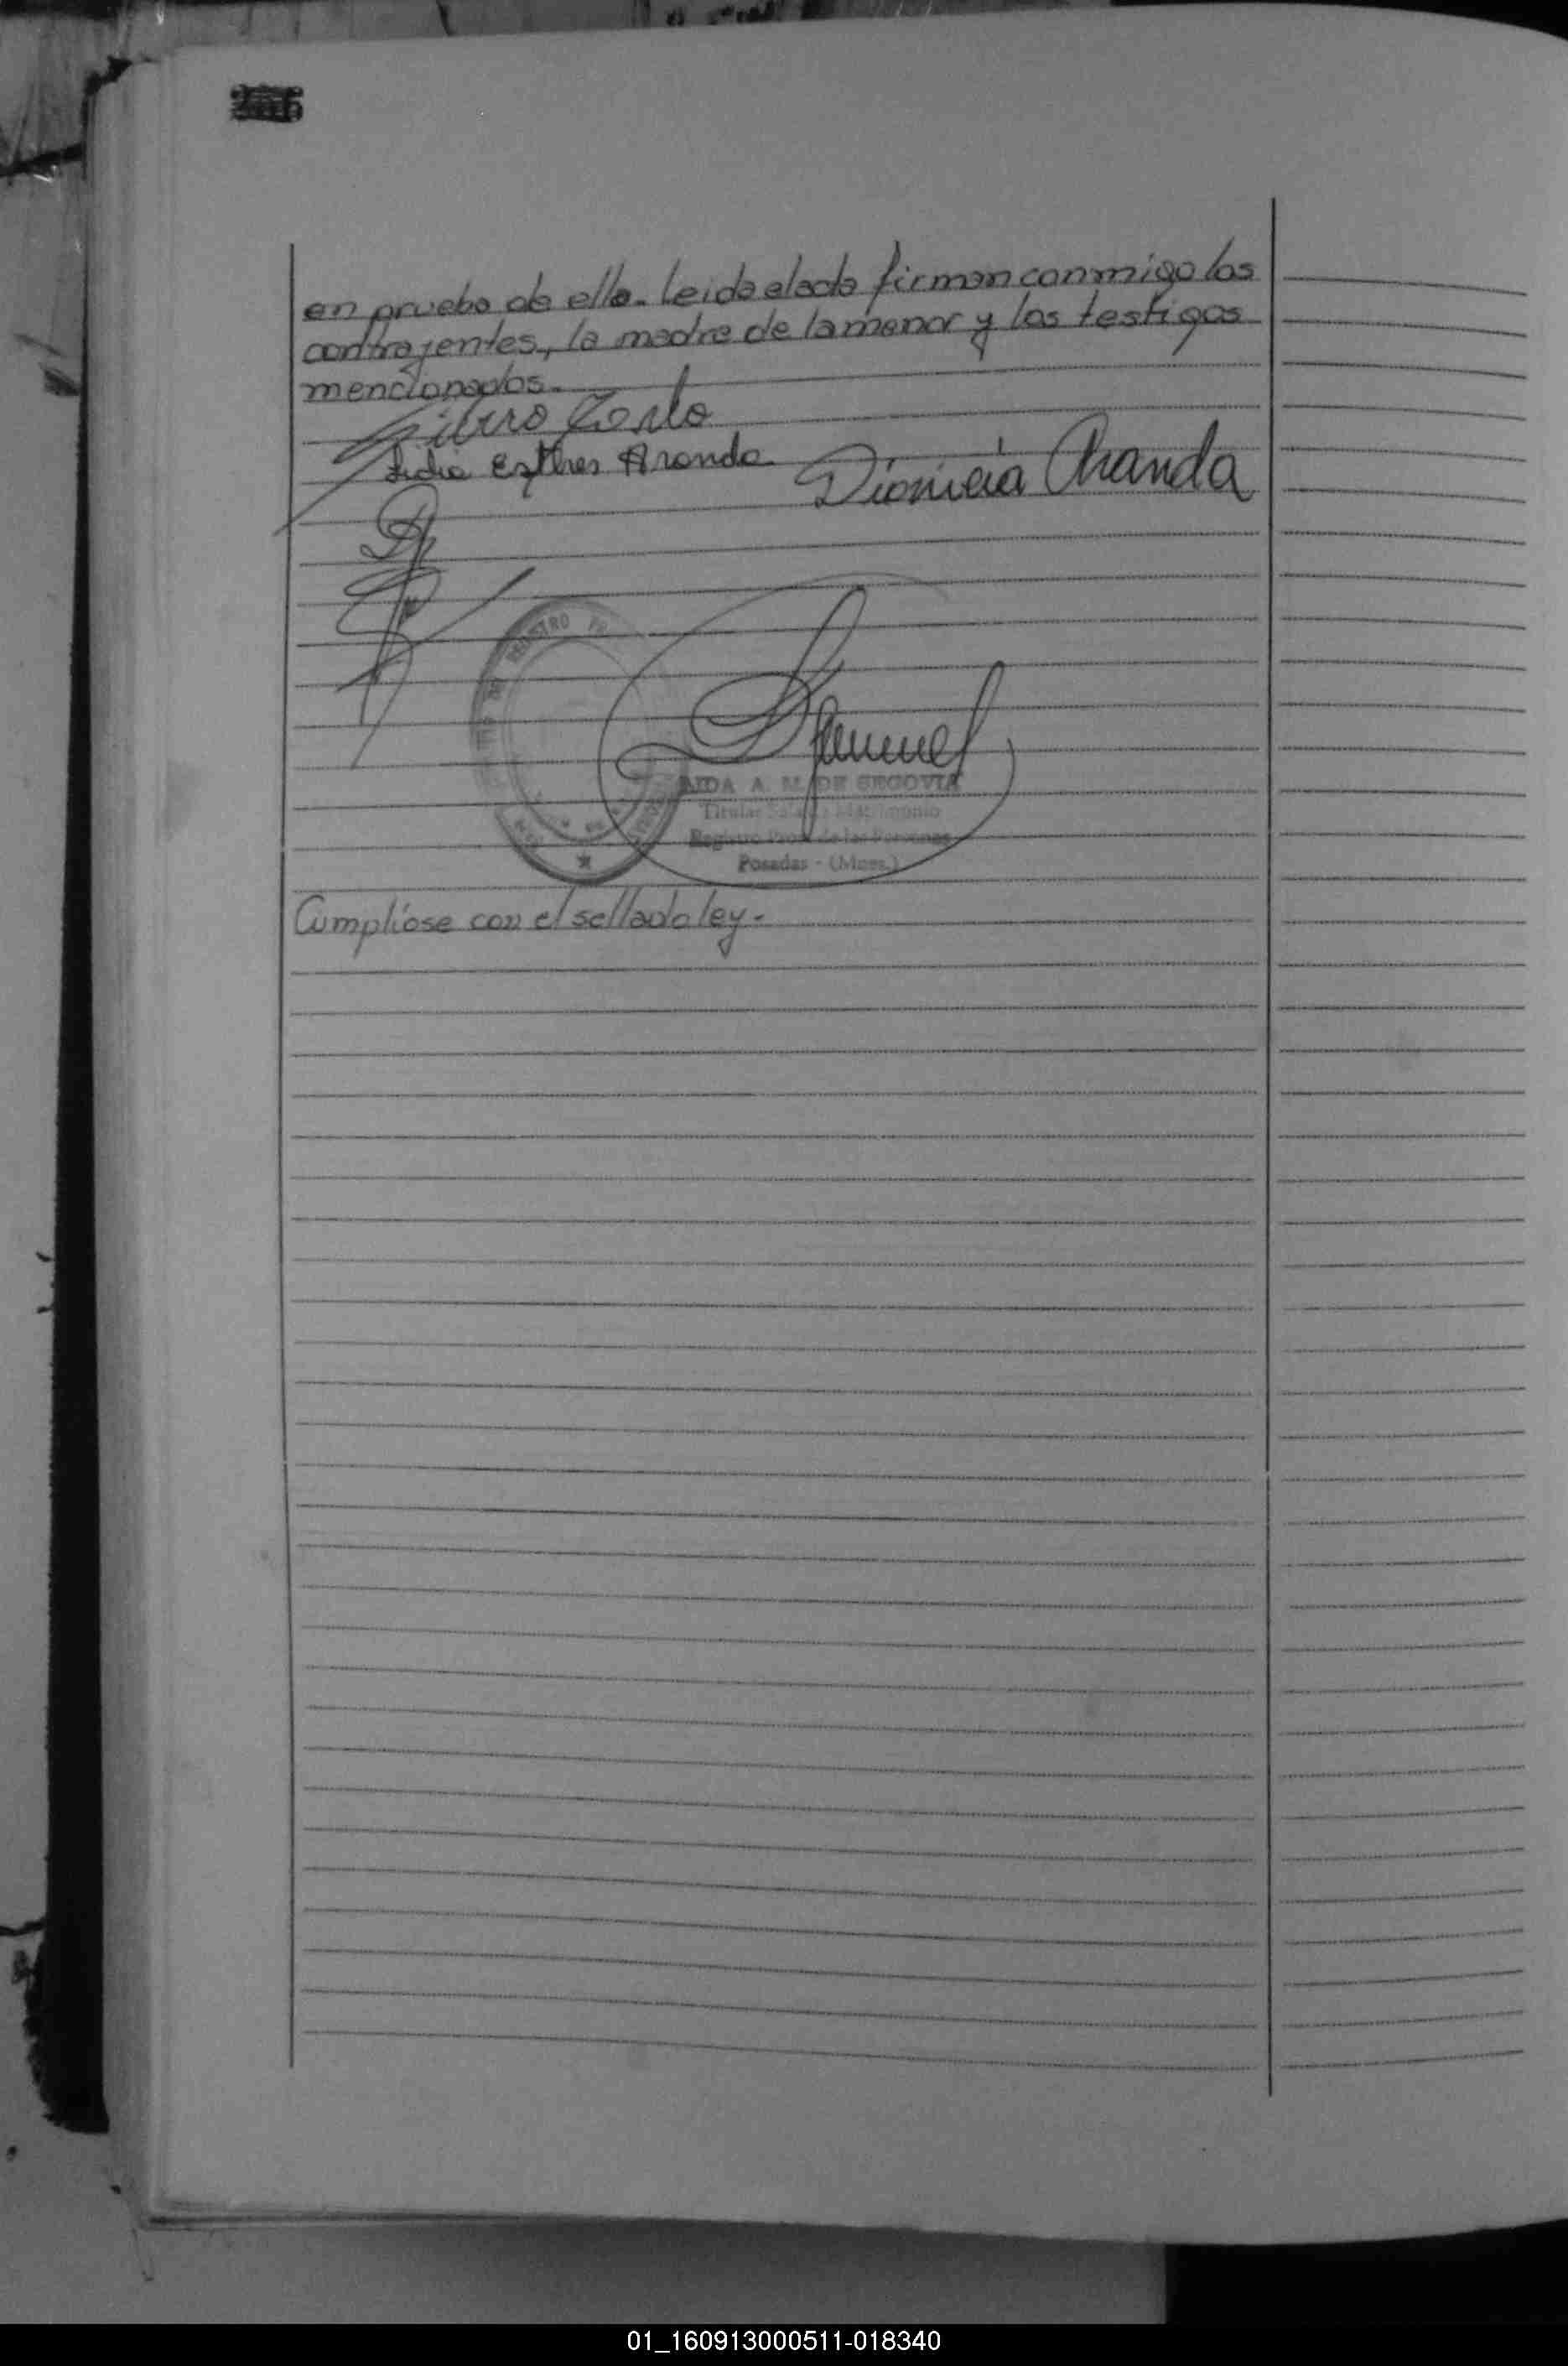 en prueba de ello. leida el acta firman conmigo los
contrayentes, la madre de la menor y los testigos
mencionados.
Lidia Esther Aranda
Dionicia Aranda
REGISTRO
AIDA A. M. DE SEGOVIA
Titular Matrimonio
Registro Prov. de las Personas
Posadas - (Mnes.)
Cumplióse con el sellado ley.
01_160913000511-018340